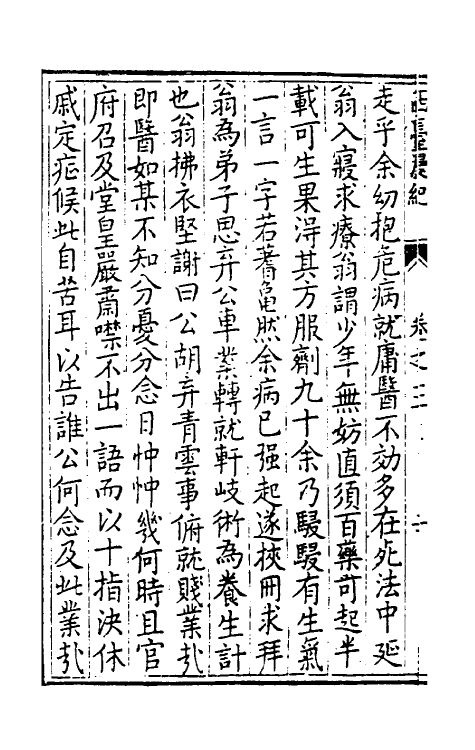 卷之三
走乎余幼抱危病就庸醫不効多在死法中延
翁入寢求療翁謂少年無妨直須百藥可起半
載可生果得其方服劑九十余乃駸駸有生氣
一言一字若蓍龜然余病已强起遂挾冊求拜
翁為弟子思弃公車業轉就軒岐術為養生計
也翁拂衣堅謝曰公胡弃青雲事俯就賤業玐
即醫如某不知分憂分念日忡忡幾何時且官
府召及堂皇嚴肅噤不出一語而以十指決休
戚定症候此自苦耳以告誰公何念及此業玐